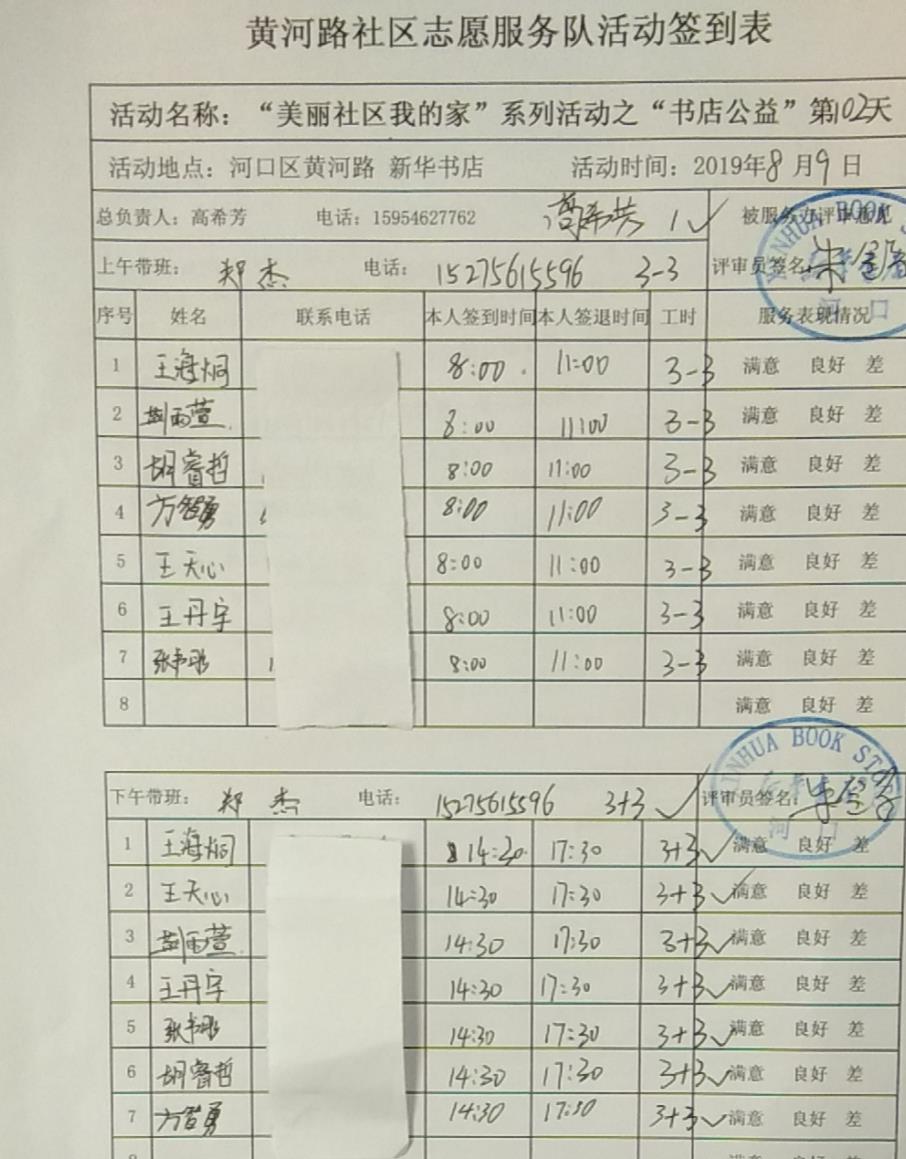 黄河路社区志愿服务队活动签到表
活动名称：“美丽社区我的家”系列活动之“书店公益”第102天
活动地点：河口区黄河路 新华书店 活动时间：2019年8月9日
总负责人：高希芳 电话：15954627762 高希芳 1✓ 被服务方评审意见
上午带班：郑杰 电话：15275615596 3-3 评审员签名
序号 姓名 联系电话 本人签到时间 本人签退时间 工时 服务表现情况
1 王海炯 8:00 11:00 3-3 满意 良好 差
2 胡雨萱 8:00 11:00 3-3 满意 良好 差
3 胡睿哲 8:00 11:00 3-3 满意 良好 差
4 方智勇 8:00 11:00 3-3 满意 良好 差
5 王天心 8:00 11:00 3-3 满意 良好 差
6 王丹宇 8:00 11:00 3-3 满意 良好 差
7 8:00 11:00 3-3 满意 良好 差
8 满意 良好 差
INHUA BOOK ST
河口
下午带班：郑杰 电话：15275615596 3+3✓ 评审员签名：
1 王海炯 14:30 17:30 3+3✓ 满意 良好 差
2 王天心 14:30 17:30 3+3✓ 满意 良好 差
3 胡雨萱 14:30 17:30 3+3✓ 满意 良好 差
4 王丹宇 14:30 17:30 3+3✓ 满意 良好 差
5 14:30 17:30 3+3✓ 满意 良好 差
6 胡睿哲 14:30 17:30 3+3✓ 满意 良好 差
7 方智勇 14:30 17:30 3+3✓ 满意 良好 差